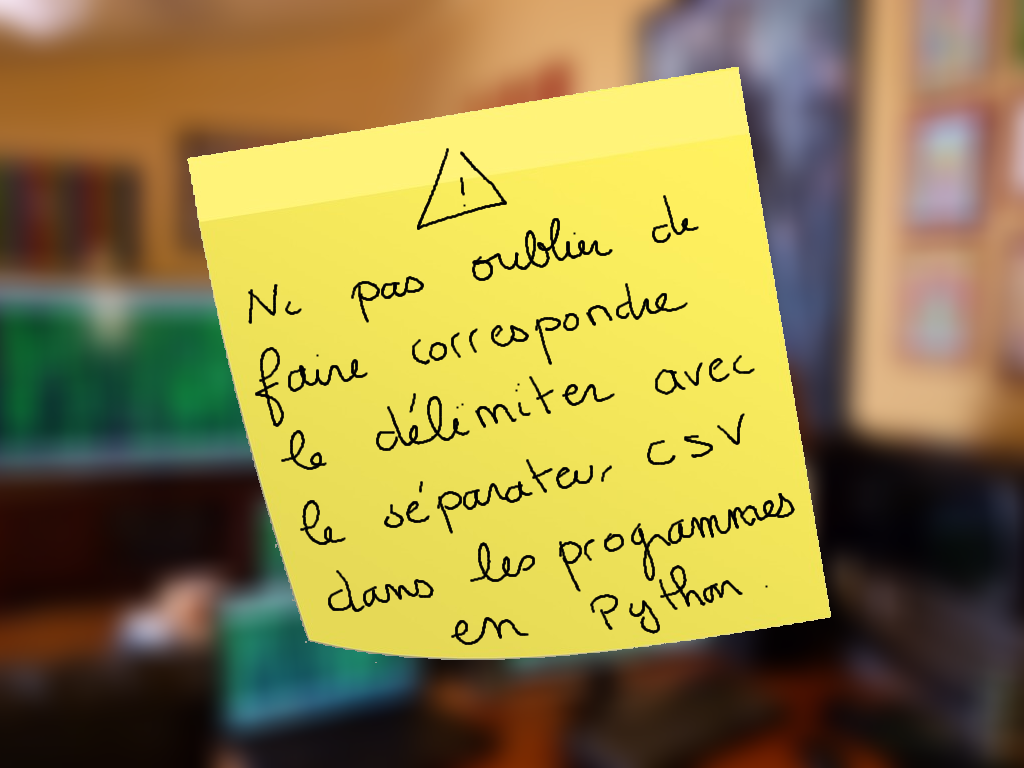 !
Ne pas oublier de
faire correspondre
le délimiter avec
le séparateur CSV
dans les programmes
en Python.